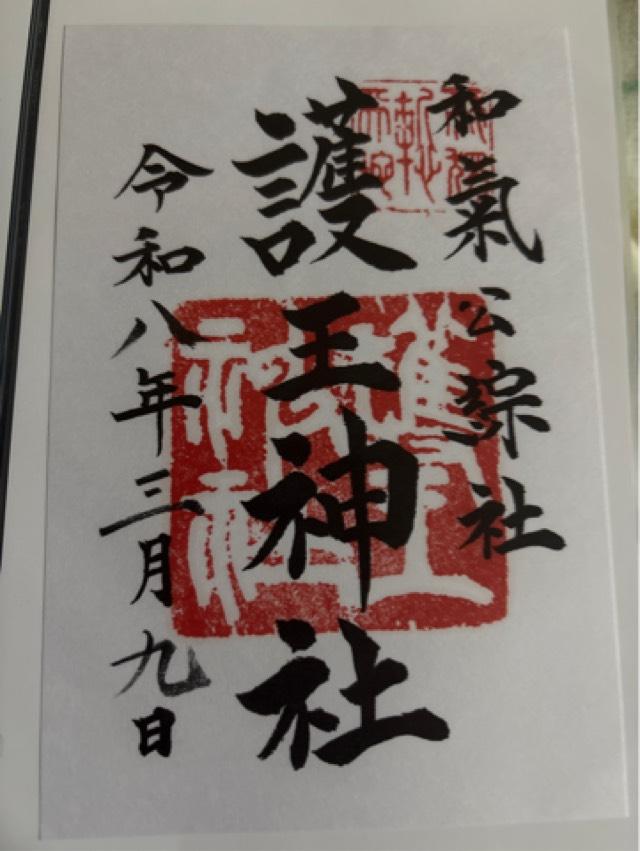 和氣公綜社
護王神社
令和八年三月九日